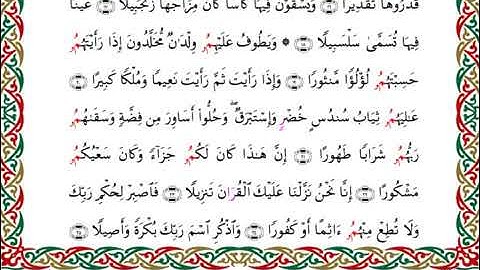 قَدَّرُوهَا تَقْدِيرًا ۝ وَيُسْقَوْنَ فِيهَا كَأْسًا كَانَ مِزَاجُهَا زَنجَبِيلًا ۝ عَيْنًا
فِيهَا تُسَمَّىٰ سَلْسَبِيلًا ۝ ۞ وَيَطُوفُ عَلَيْهِمُۥ وِلْدَٰنٌ مُّخَلَّدُونَ إِذَا رَأَيْتَهُمُۥ
حَسِبْتَهُمُۥ لُؤْلُؤًا مَّنثُورًا ۝ وَإِذَا رَأَيْتَ ثَمَّ رَأَيْتَ نَعِيمًا وَمُلْكًا كَبِيرًا ۝
عَٰلِيَهُمُۥ ثِيَابُ سُندُسٍ خُضْرٍ وَإِسْتَبْرَقٌ ۖ وَحُلُّوٓا۟ أَسَاوِرَ مِن فِضَّةٍ وَسَقَىٰهُمُۥ
رَبُّهُمُۥ شَرَابًا طَهُورًا ۝ إِنَّ هَٰذَا كَانَ لَكُمُۥ جَزَآءً وَكَانَ سَعْيُكُمُۥ
مَشْكُورًا ۝ إِنَّا نَحْنُ نَزَّلْنَا عَلَيْكَ الْقُرَانَ تَنزِيلًا ۝ فَاصْبِرْ لِحُكْمِ رَبِّكَ
وَلَا تُطِعْ مِنْهُمُۥ ءَاثِمًا أَوْ كَفُورًا ۝ وَاذْكُرِ اسْمَ رَبِّكَ بُكْرَةً وَأَصِيلًا ۝